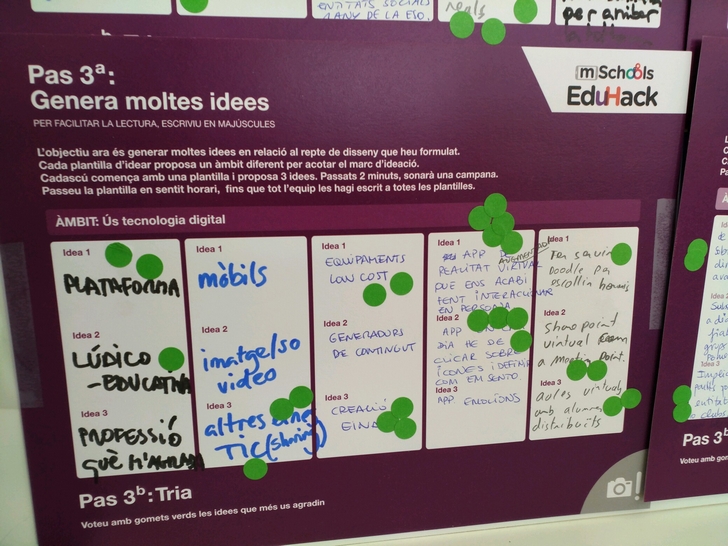 ENTITATS SOCIALS
I ANY DE LA ESO.
reals
per arribar
Pas 3ª:
Genera moltes idees
PER FACILITAR LA LECTURA, ESCRIVIU EN MAJÚSCULES
mSchools
EduHack
L'objectiu ara és generar moltes idees en relació al repte de disseny que heu formulat.
Cada plantilla d'idear proposa un àmbit diferent per acotar el marc d'ideació.
Cadascú comença amb una plantilla i proposa 3 idees. Passats 2 minuts, sonarà una campana.
Passeu la plantilla en sentit horari, fins que tot l'equip les hagi escrit a totes les plantilles.
ÀMBIT: Ús tecnologia digital
Idea 1
PLATAFORMA
Idea 2
LÚDICO
-EDUCATIVA
Idea 3
PROFESSIÓ
QUÈ M'AGRADA
Idea 1
mòbils
Idea 2
imatge/so
video
Idea 3
altres eines
TIC (sharing)
Idea 1
EQUIPAMENTS
LOW COST
Idea 2
GENERADORS
DE CONTINGUT
Idea 3
CREACIÓ
EINA
Idea 1
APP D
REALITAT VIRTUAL
AUGMENTADA
QUE ENS ACABI
FENT INTERACCIONAR
EN PERSONA
Idea 2
APP ON CADA
DIA HE DE
CLICAR SOBRE
ICONES I DEFINIR
COM EM SENTO.
Idea 3
APP EMOCIONS
Idea 1
Fer servir
Doodle per
escollir horaris
Idea 2
show point
virtual room
a meeting point.
Idea 3
aules virtuals
amb alumnes
distribuïts
Pas 3ᵇ: Tria
Voteu amb gomets verds les idees que més us agradin
Pas 3ᵇ
Voteu amb gom